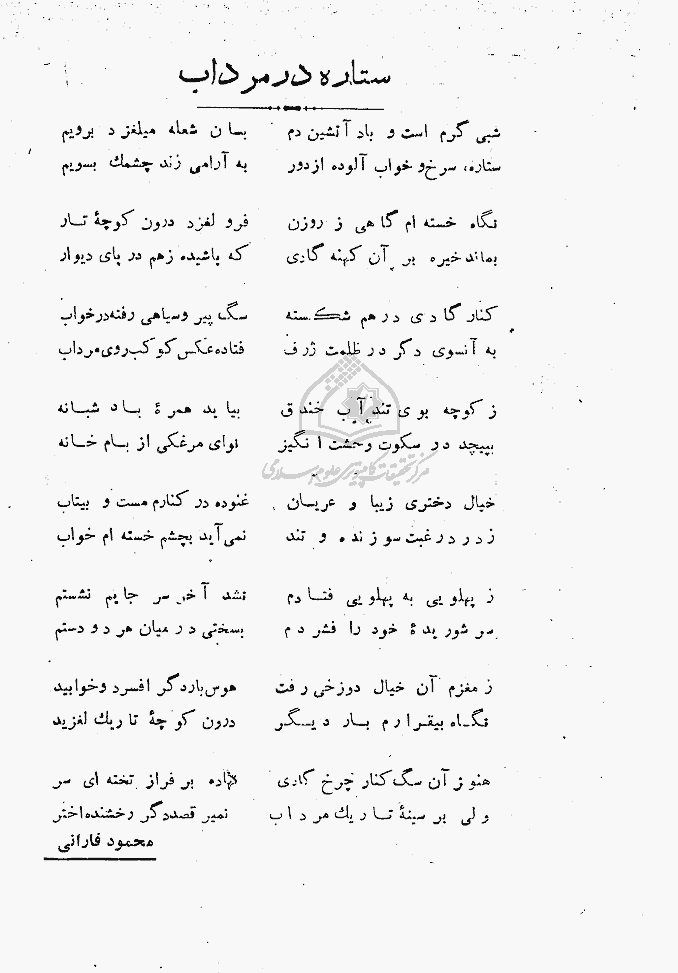 ستاره در مرداب
شبی گرم است و باد آتشین دم    بسان شعله میلغزد برویم
ستاره، سرخ و خواب آلوده از دور    به آرامی زند چشمك بسویم
نگاه خسته ام گاهی ز روزن    فرو لغزد درون کوچۀ تار
بماند خیره بر آن کهنه گادی    که پاشیده زهم در پای دیوار
کنار گادی درهم شکسته    سگ پیر و سیاهی رفته در خواب
به آنسوی دگر در ظلمت ژرف    فتاده عکس کوکب روی مرداب
ز کوچه بوی تند آب خندق    بیاید همرۀ باد شبانه
بپیچد در سکوت وحشت انگیز    نوای مرغکی از بام خانه
خیال دختری زیبا و عریان    غنوده در کنارم مست و بیتاب
زدر در غبت سوزنده و تند    نمی آید بچشم خسته ام خواب
ز پهلویی به پهلویی فتادم    نشد آخر سر جایم نشستم
سر شوریدۀ خود را فشردم    بسختی در میان هر دو دستم
ز مغزم آن خیال دوزخی رفت    هوس باردگر افسرد و خوابید
نگاه بیقرارم بار دیگر    درون کوچۀ تاریك لغزید
هنوز آن سگ کنار چرخ گادی    نهاده بر فراز تخته ای سر
ولی بر سینۀ تاریك مرداب    نمیرقصد دگر رخشنده اختر
محمود فارانی
مرکز تحقیقات کامپیوتری علوم اسلامی